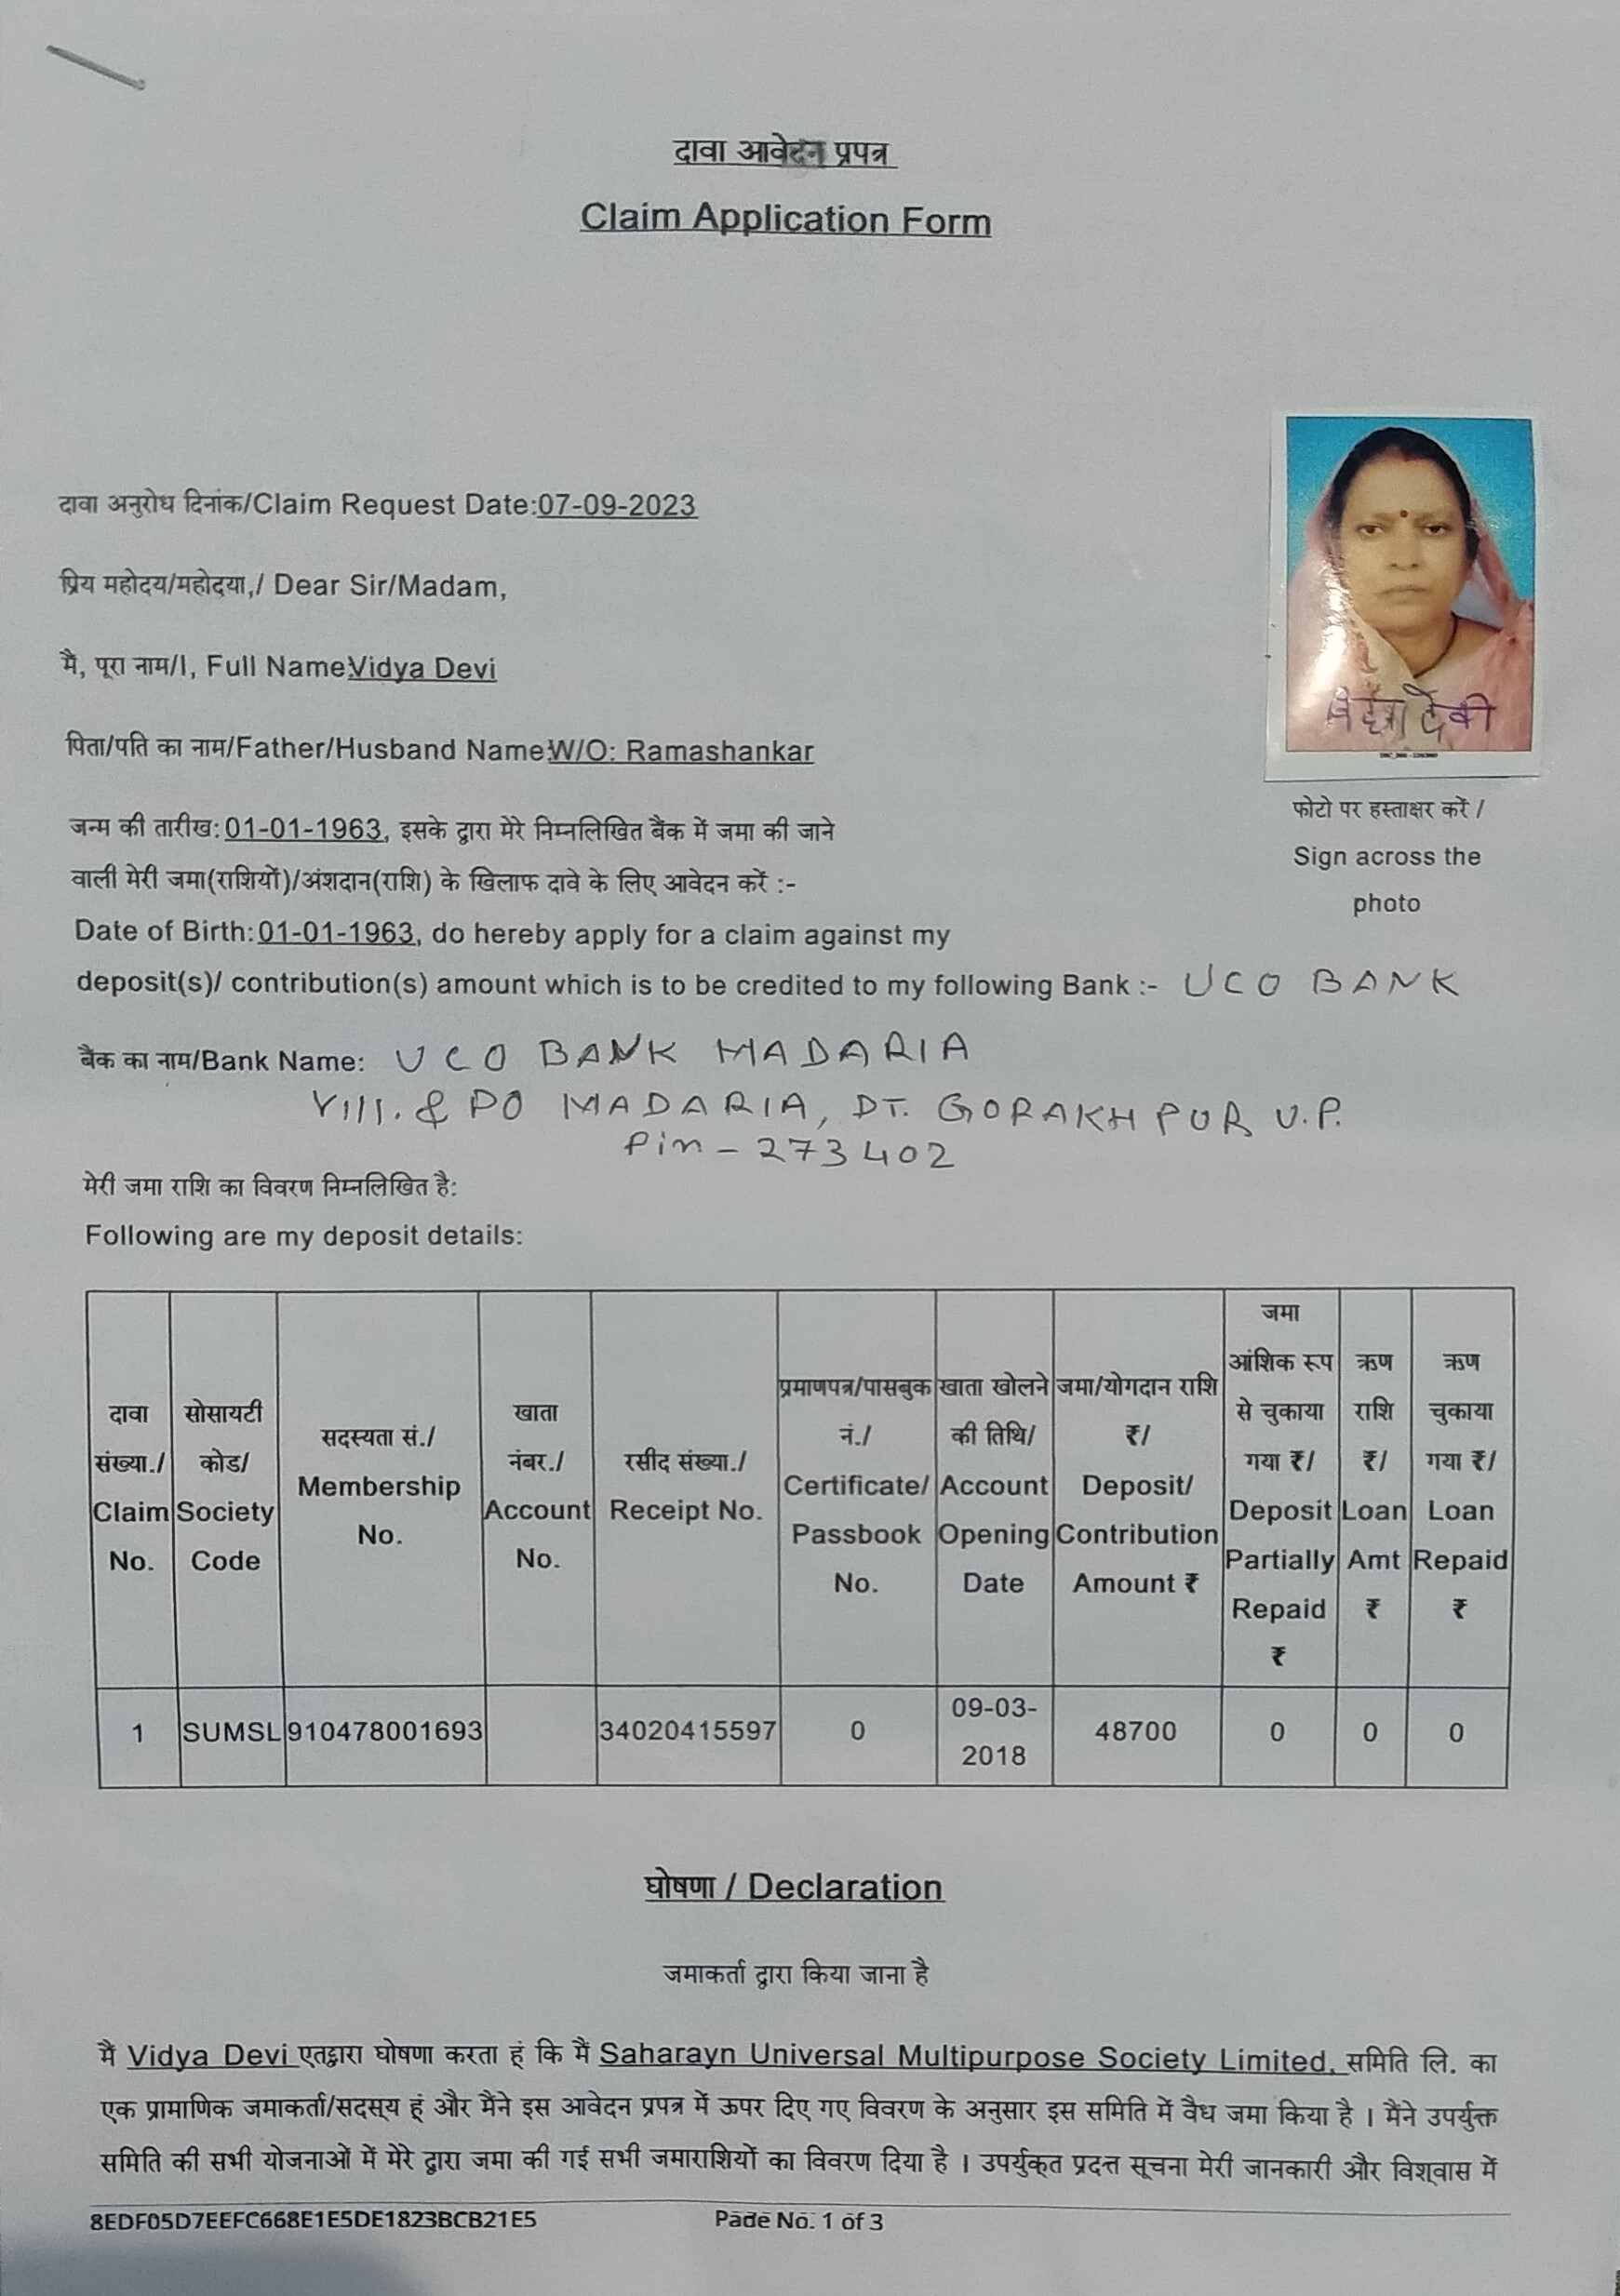 दावा आवेदन प्रपत्र
Claim Application Form
दावा अनुरोध दिनांक/Claim Request Date:07-09-2023
प्रिय महोदय/महोदया,/ Dear Sir/Madam,
मै, पूरा नाम/I, Full Name:Vidya Devi
पिता/पति का नाम/Father/Husband Name:W/O: Ramashankar
देवी
फोटो पर हस्ताक्षर करें /
Sign across the
photo
जन्म की तारीख:01-01-1963, इसके द्वारा मेरे निम्नलिखित बैंक में जमा की जाने
वाली मेरी जमा(राशियों)/अंशदान(राशि) के खिलाफ दावे के लिए आवेदन करें :-
Date of Birth:01-01-1963, do hereby apply for a claim against my
deposit(s)/ contribution(s) amount which is to be credited to my following Bank :- UCO BANK
बैंक का नाम/Bank Name: UCO BANK MADARIA
Vill. & PO MADARIA, DT. GORAKHPUR U.P.
Pin - 273402
मेरी जमा राशि का विवरण निम्नलिखित है:
Following are my deposit details:
दावा संख्या./ Claim No.
सोसायटी कोड/ Society Code
सदस्यता सं./ Membership No.
खाता नंबर./ Account No.
रसीद संख्या./ Receipt No.
प्रमाणपत्र/पासबुक नं./ Certificate/ Passbook No.
खाता खोलने की तिथि/ Account Opening Date
जमा/योगदान राशि ₹/ Deposit/ Contribution Amount ₹
जमा आंशिक रूप से चुकाया गया ₹/ Deposit Partially Repaid ₹
ऋण राशि ₹/ Loan Amt ₹
ऋण चुकाया गया ₹/ Loan Repaid ₹
1 SUMSL 910478001693 34020415597 0 09-03-2018 48700 0 0 0
घोषणा / Declaration
जमाकर्ता द्वारा किया जाना है
मै Vidya Devi एतद्वारा घोषणा करता हूं कि मैं Saharayn Universal Multipurpose Society Limited, समिति लि. का
एक प्रामाणिक जमाकर्ता/सदस्य हूं और मैंने इस आवेदन प्रपत्र में ऊपर दिए गए विवरण के अनुसार इस समिति में वैध जमा किया है । मैंने उपर्युक्त
समिति की सभी योजनाओं में मेरे द्वारा जमा की गई सभी जमाराशियों का विवरण दिया है । उपर्युक्त प्रदत्त सूचना मेरी जानकारी और विश्वास में
8EDF05D7EEFC668E1E5DE1823BCB21E5 Page No: 1 of 3